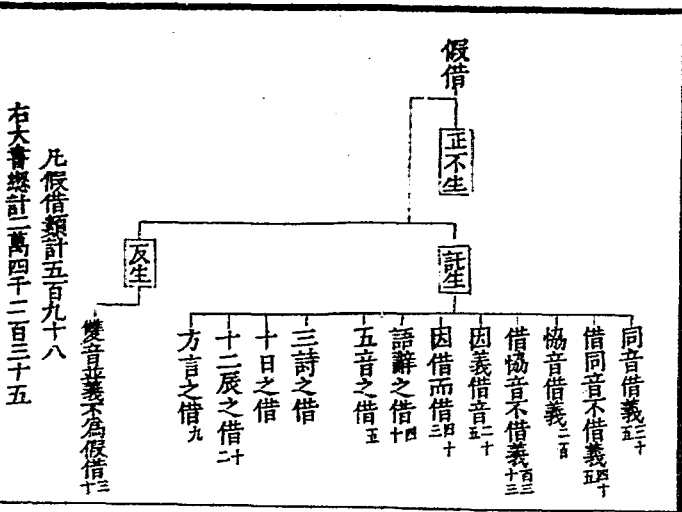 假借
正不生
託生
同音借義三十五
借同音不借義四十五
協音借義二百
借協音不借義百三十三
因義借音二十五
因借而借四十三
語辭之借四十
五音之借五
三詩之借
十日之借
十二辰之借十二
方言之借九
反生
雙音並義不爲假借三十
凡假借類計五百九十八
右六書總計二萬四千二百三十五